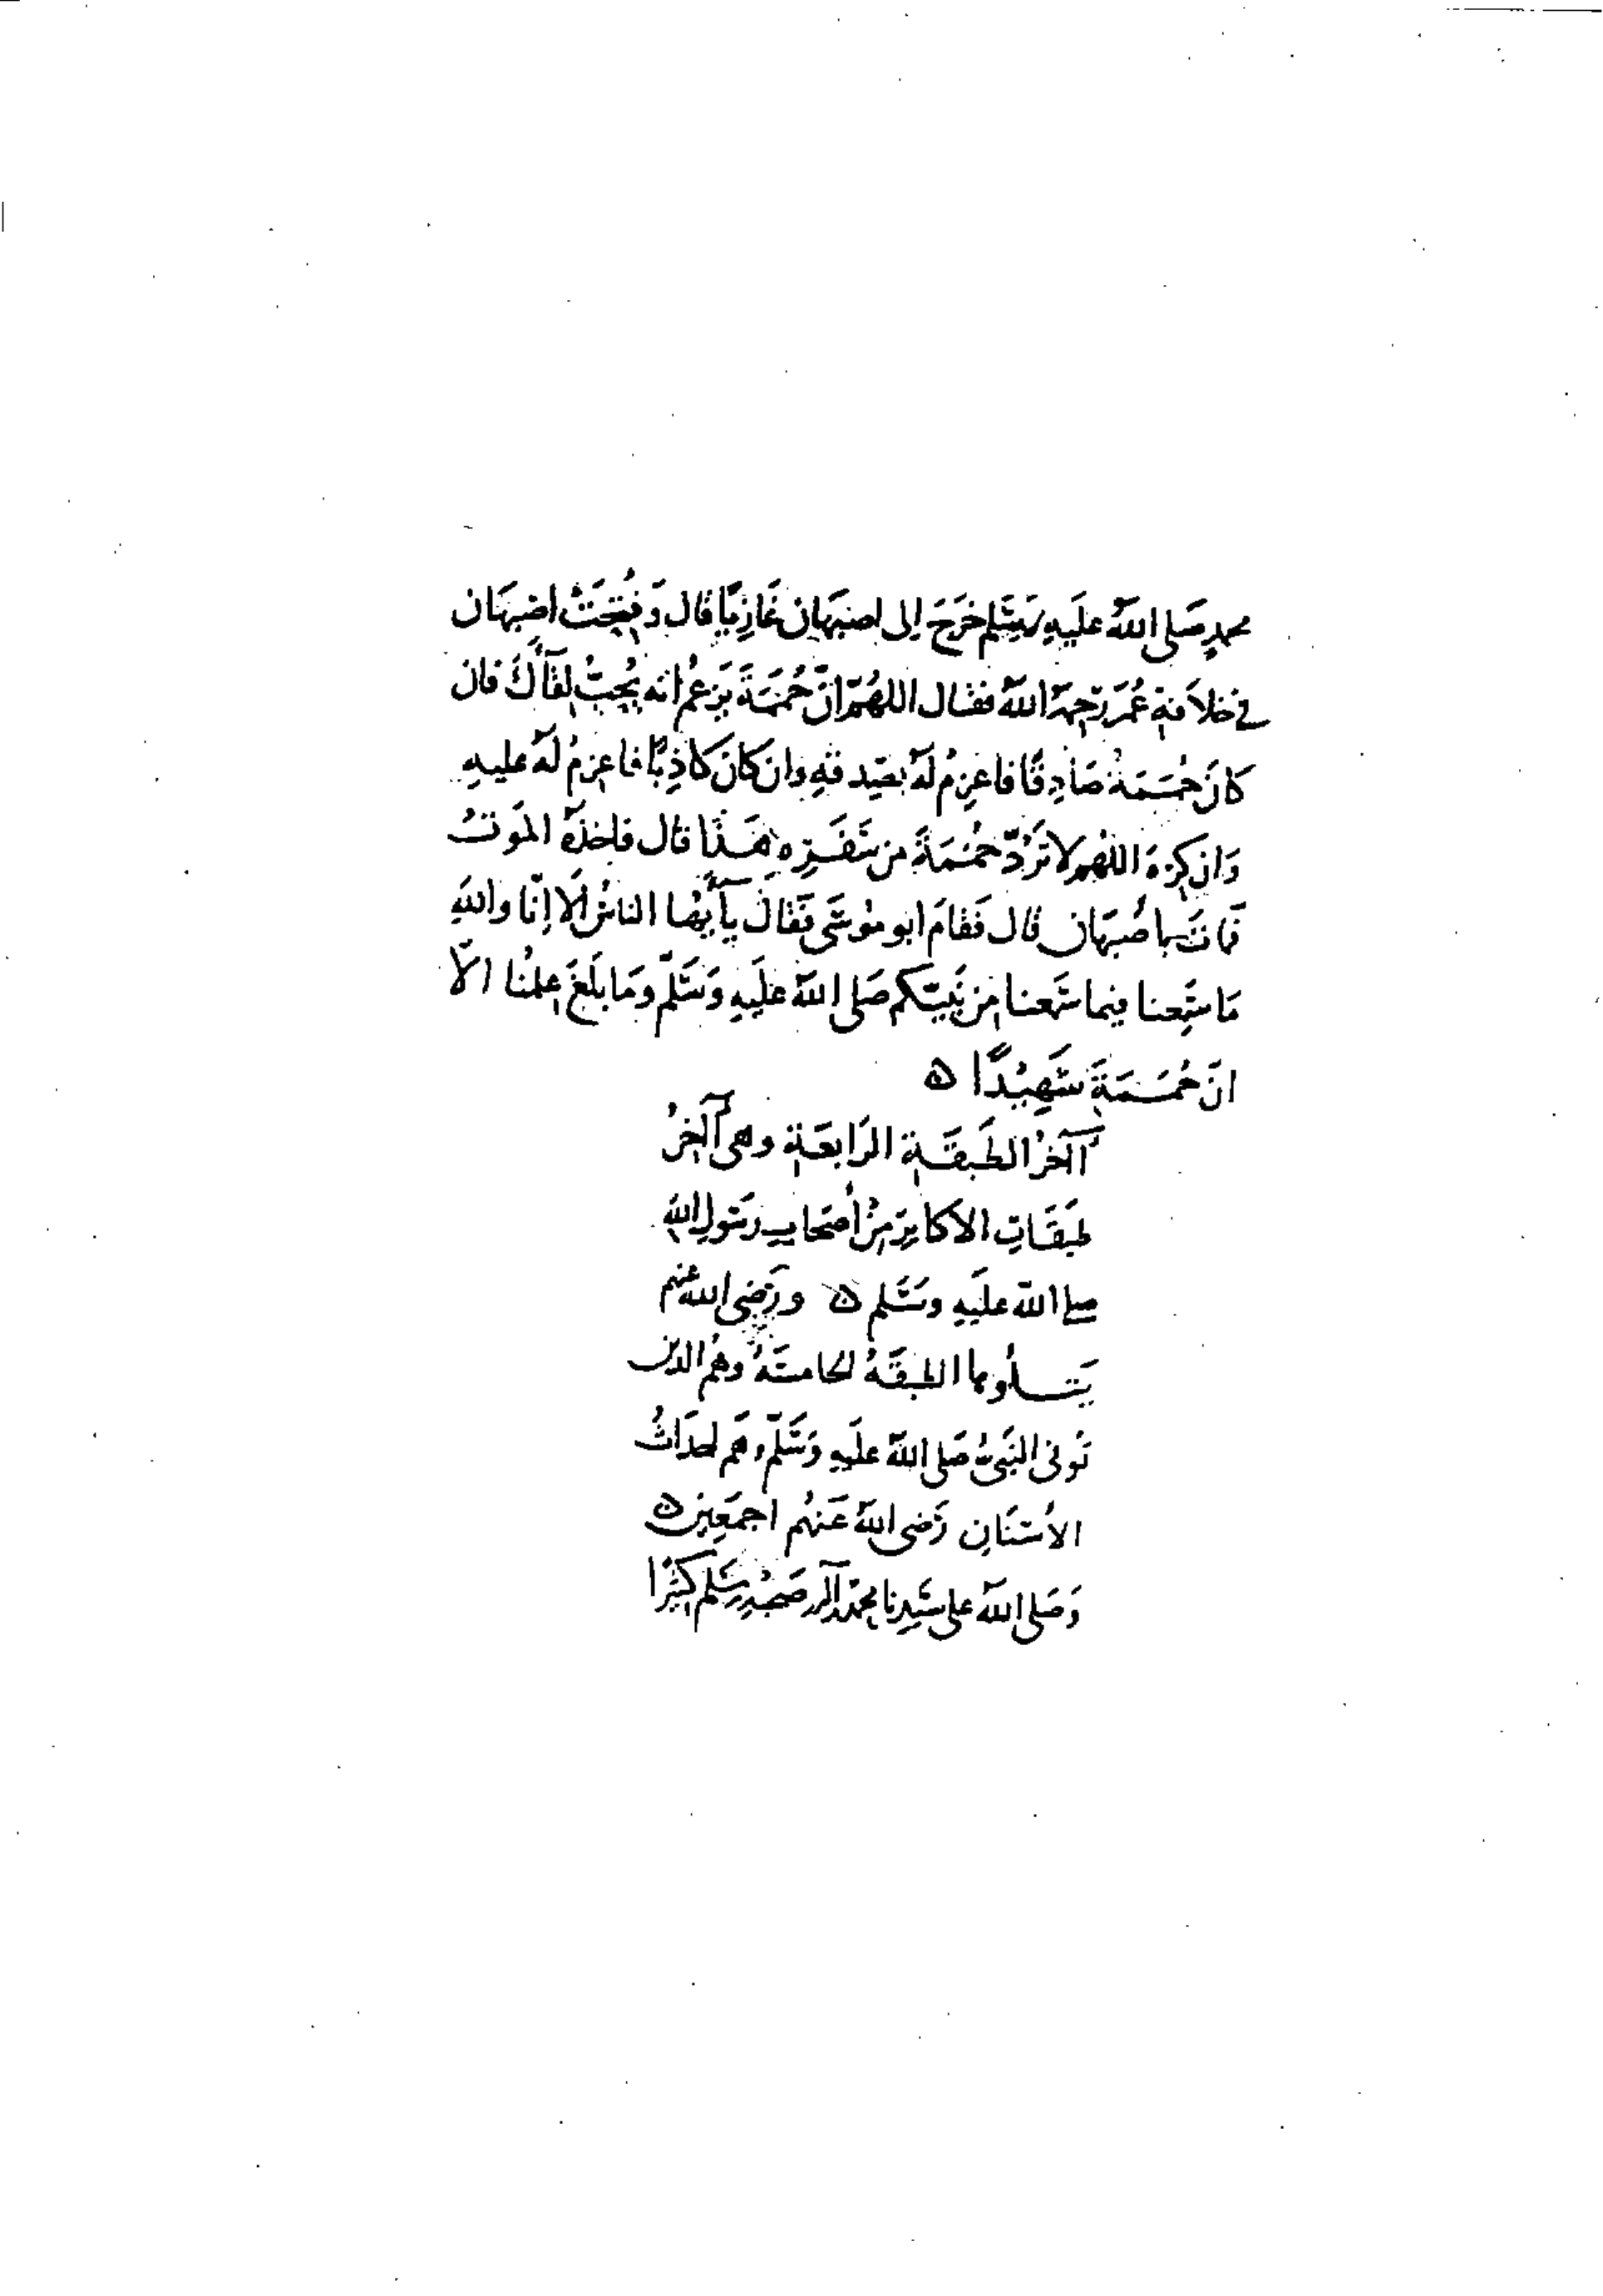 محمدٍ صَلى اللهُ عليَهِ وَسَلم خَرَجَ الى اصبَهَان غَازِيًا قال وَفُتِحَتْ اصْبهَان
في خلاَفةِ عُمَرَ رَحِمَهُ اللهُ فقال اللهُمّ انّ حُمَمَةَ يَزعُمُ انه يُحِبُّ لِقَآءَكَ فان
كانَ حُمَمَةُ صَادِقًا فاعزِمْ لَهُ بصِدقهِ وان كانَ كاذِبًا فاعزِمْ لَهُ عليهِ
وَان كرِهَ اللهُم لا تَرُدّ حُمَمَةَ من سَفَرِهِ هَذَا قال فاخذهُ الموَتُ
فماتَ باصْبَهَان قال فَقامَ ابو موُسَى فَقالَ يآ أيُها الناسُ ألَا اِنّا واللهِ
مَا سَمِعنا فيما سَمعنا مِن نَبيّكم صَلى اللهُ عَليَهِ وَسَلّم وَمَا بلَغَ عِلمُنا الاّ
انّ حُمَمَةَ شَهِيْدًا ه
آخرُ الطَبقَةِ الرَابعَةِ وهى آخِرُ
طَبقَاتِ الاكابِرِ مِنْ أصحَابِ رَسَولِ اللهِ
صلى الله عليَهِ وسَلم ه ورَضِى الله عنهم
يَتلُوها الطبقَةُ الخامسَةُ وهُم الذين
تُوفى النَبىُّ صَلى اللهُ عَليَهِ وَسَلّم وهُم احدَاثُ
الأسنَانِ رَضى اللهُ عَنهُم اجمَعِين ه
وَصَلى اللهُ على سَيدِنا محمّد وآله وصَحبِهِ وسَلم كثيرًا